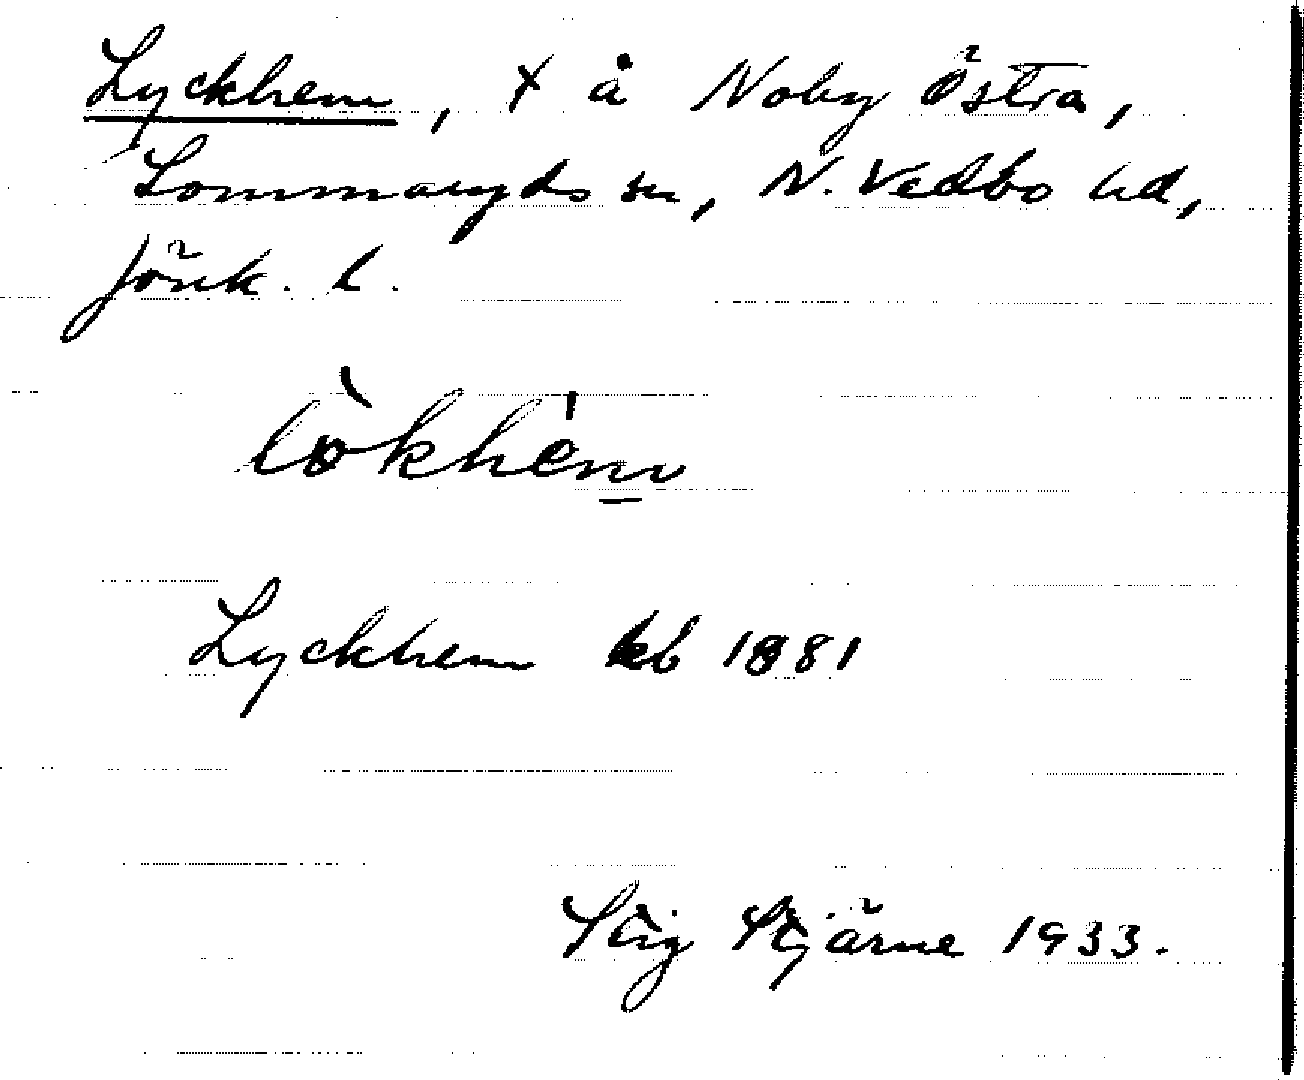 Lyckhem, x å Noby Östra,
Lommaryds sn, N. Vedbo hd,
Jönk. l.
lòkhém
Lyckhem kb 1881
Stig Stjärne 1933.